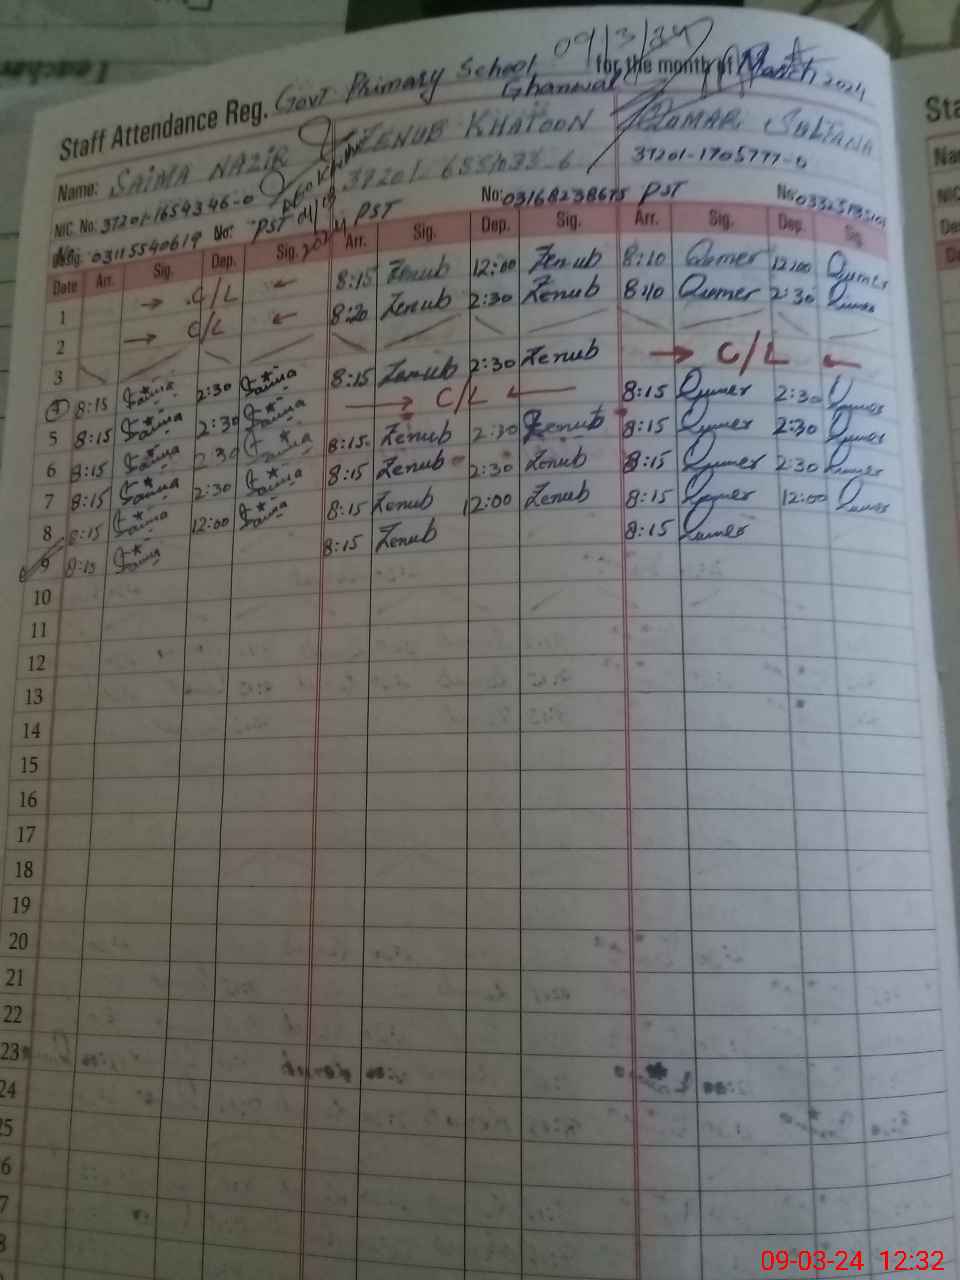 Teacher
09/3/24
Staff Attendance Reg. Govt Primary School Ghanwal for the month of March 2024
Name: SAIMA NAZIR ZENUB KHATOON QAMAR SULTANA
NIC. No. 37201-1654346-0 37201-655 37201-1705777-0
No: 03115540619 No: PST PST No: 03168238675 PST No:
Date Arr. Sig. Dep. Sig. Arr. Sig. Dep. Sig. Arr. Sig. Dep. Sig.
1 → C/L ← 8:15 Zenub 12:00 Zenub 8:10 Qumer 12:00 Qumer
2 → C/L ← 8:20 Zenub 2:30 Zenub 8:10 Qumer 2:30 Qumer
3
4 8:15 Saima 2:30 Saima 8:15 Zenub 2:30 Zenub → C/L ←
5 8:15 Saima 2:30 Saima → C/L ← 8:15 Qumer 2:30 Qumer
6 8:15 Saima 2:30 Saima 8:15 Zenub 2:30 Zenub 8:15 Qumer 2:30 Qumer
7 8:15 Saima 2:30 Saima 8:15 Zenub 2:30 Zenub 8:15 Qumer 2:30 Qumer
8 8:15 Saima 12:00 Saima 8:15 Zenub 12:00 Zenub 8:15 Qumer 12:00 Qumer
9 8:15 Saima 8:15 Zenub 8:15 Qumer
10
11
12
13
14
15
16
17
18
19
20
21
22
23
24
25
6
7
8
Sta
Na
NIC
De
09-03-24 12:32